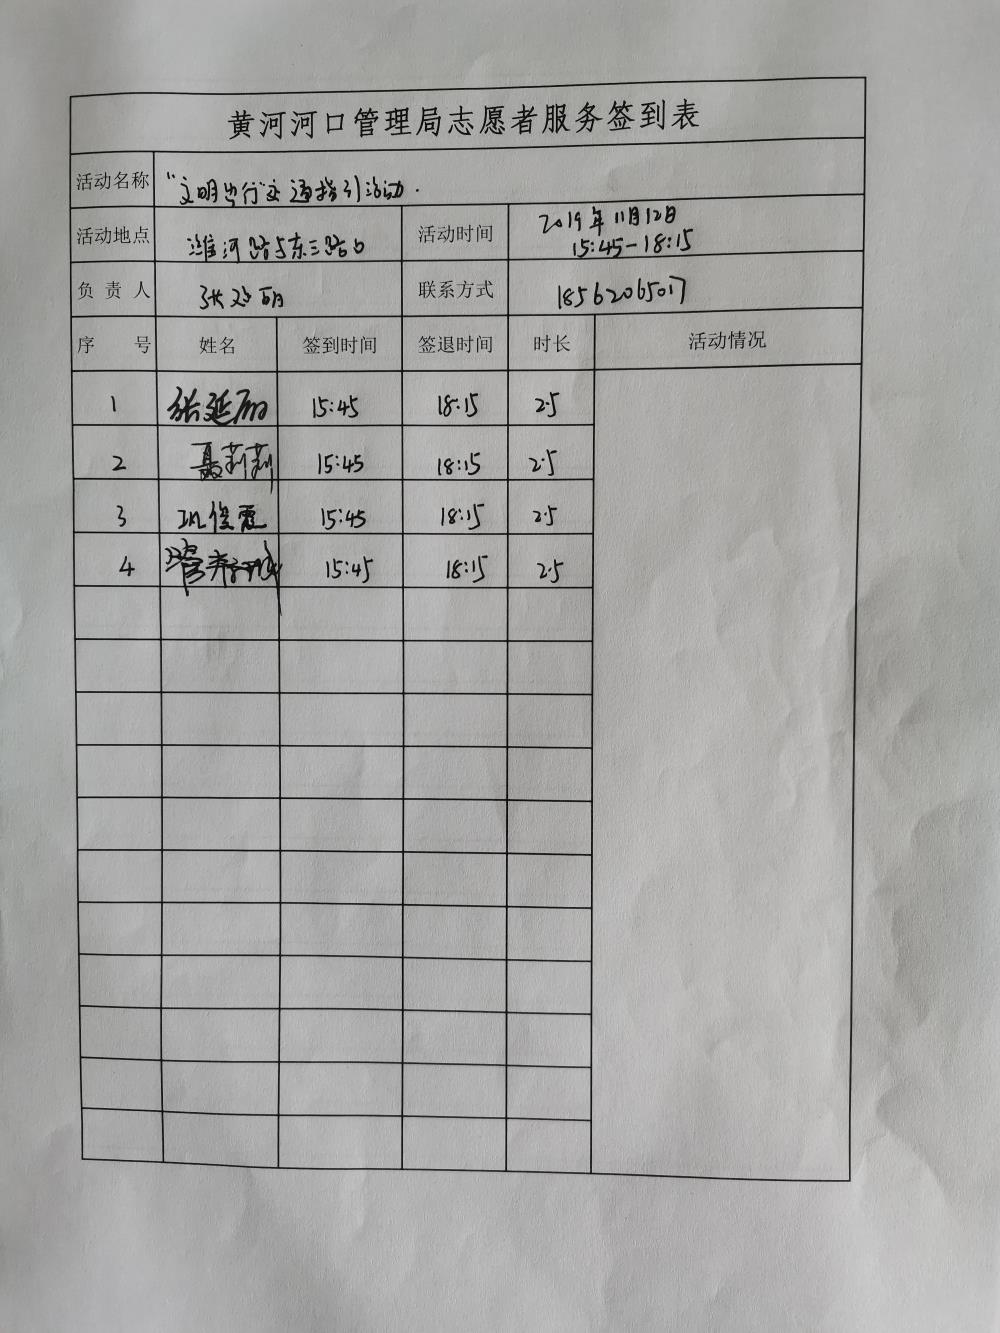 黄河河口管理局志愿者服务签到表
活动名称 "文明出行"交通指引活动.
活动地点 潍河路与东三路口 活动时间 2019年11月12日
15:45-18:15
负责人 张延 联系方式 18562065017
序号 姓名 签到时间 签退时间 时长 活动情况
1 张延 15:45 18:15 2.5
2 聂莉莉 15:45 18:15 2.5
3 15:45 18:15 2.5
4 15:45 18:15 2.5